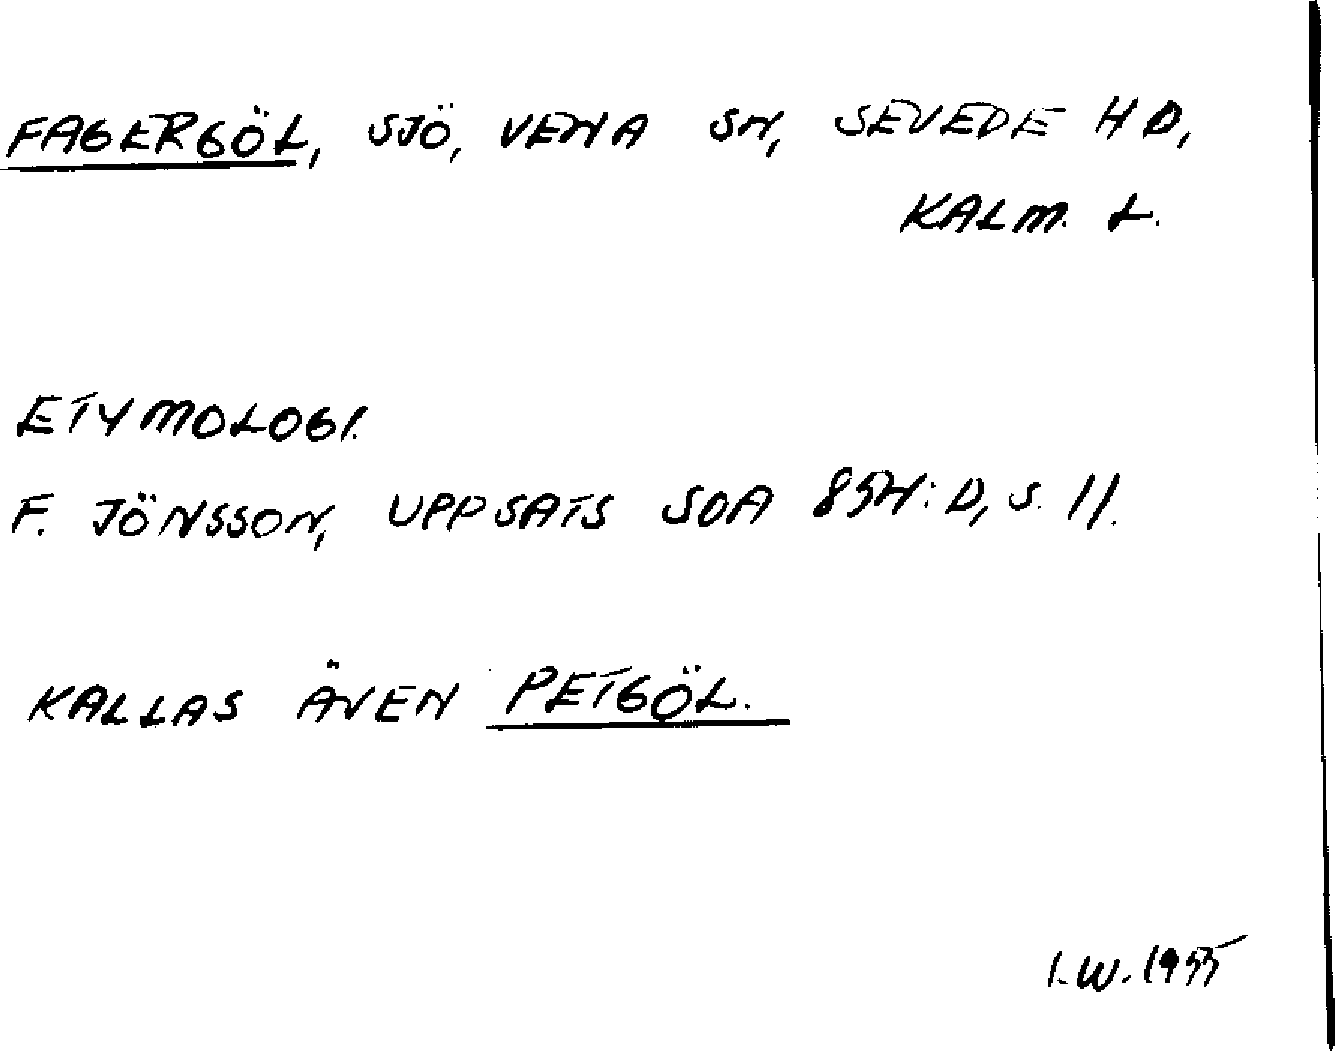 FAGERGÖL, SJÖ, VENA SN, SEVEDE HD,
KALM. L.
ETYMOLOGI.
F. JÖNSSON, UPPSATS SOA 854:D, S. 11.
KALLAS ÄVEN PETGÖL.
I.W. 1955